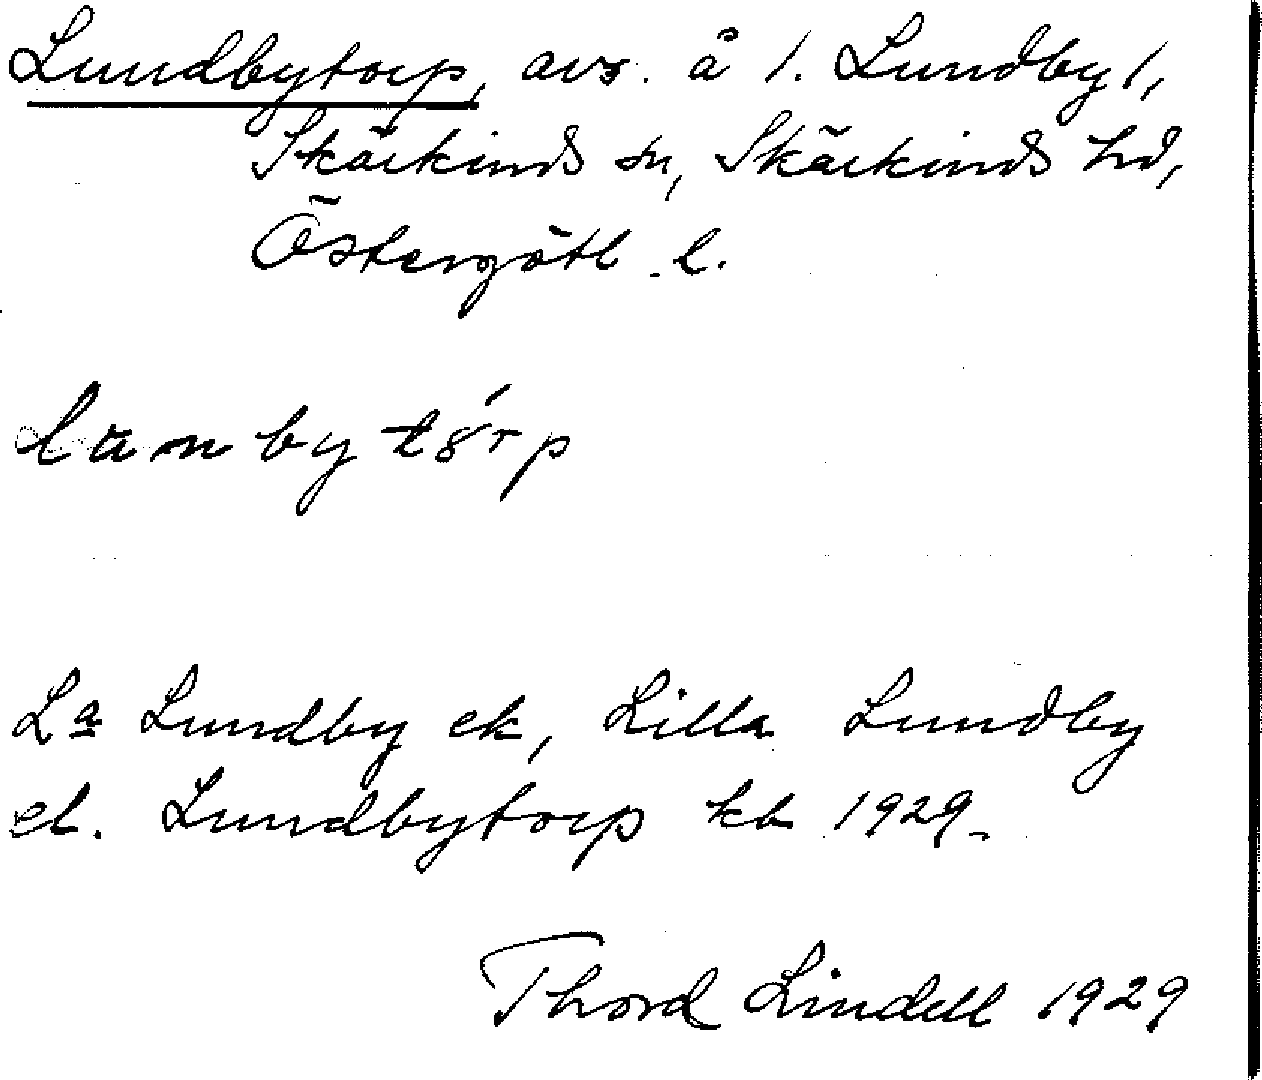 Lundbytorp, avs. å 1. Lundby 1,
Skärkinds sn, Skärkinds hd,
Östergötl. l.
La Lundby ek, Lilla Lundby
el. Lundbytorp kb 1929.
Thord Lindell 1929